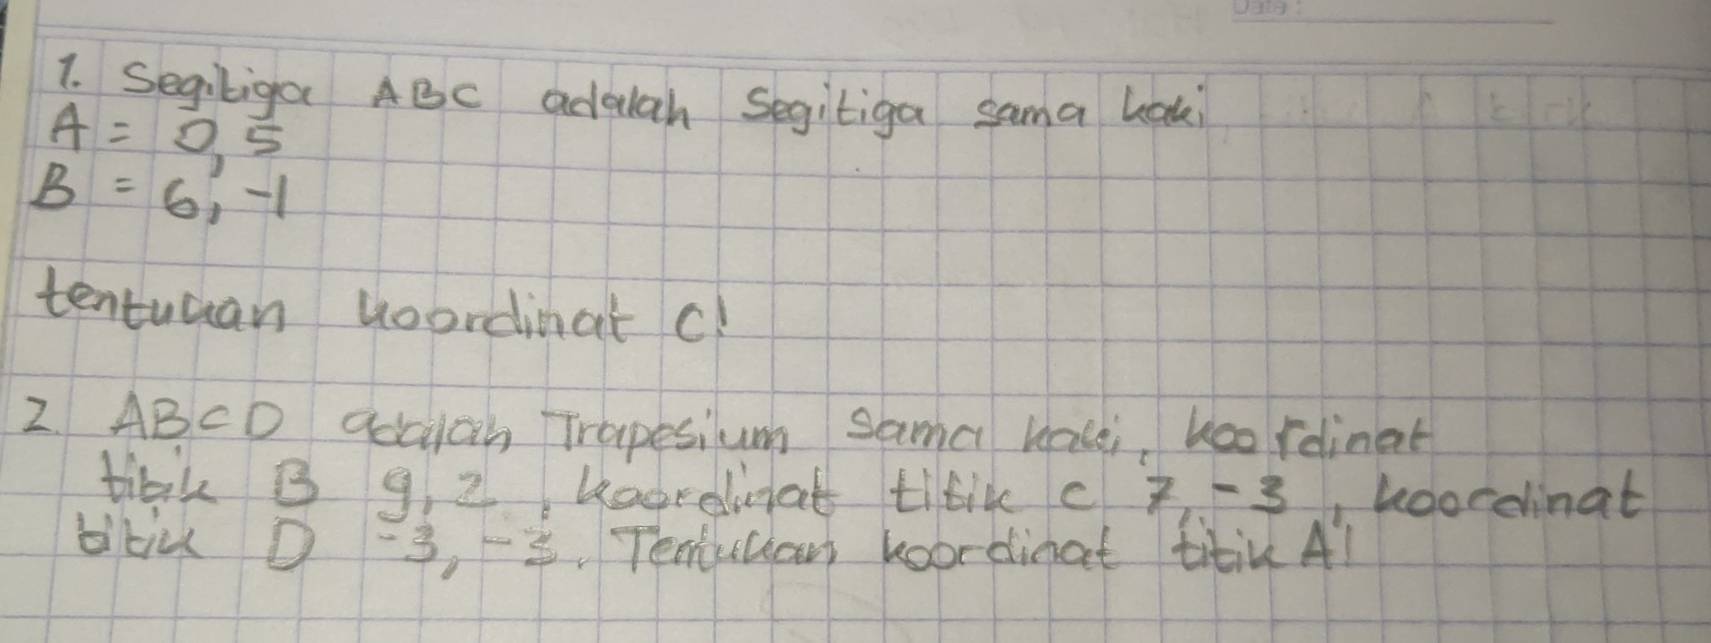 Date:
1. Segitiga ABC adalah segitiga sama kaki
A = 0,5
B = 6,-1
tentukan koordinat C!
2. ABCD adalah Trapesium sama kaki, koordinat
titik B 9,2, koordinat titik C 7,-3, koordinat
titik D -3,-3. Tentukan koordinat titik A!